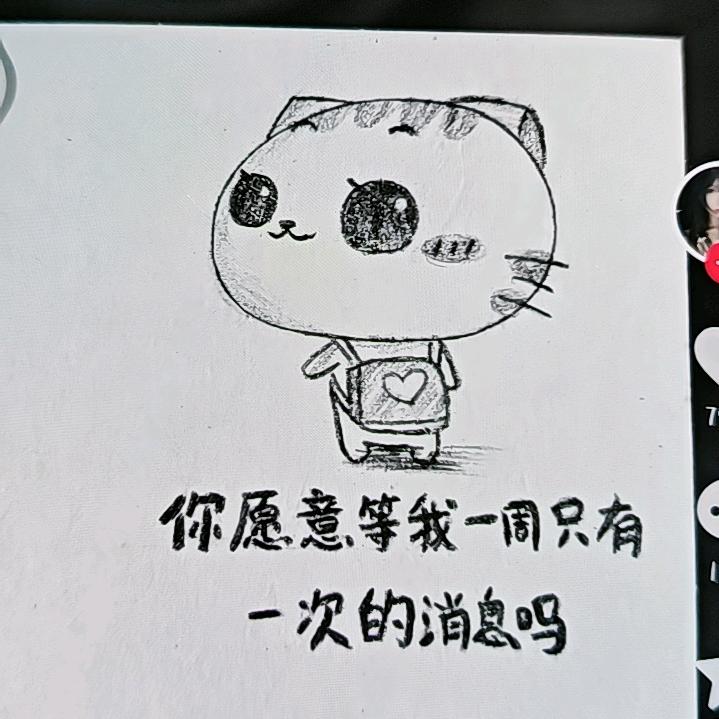 你愿意等我一周只有
一次的消息吗